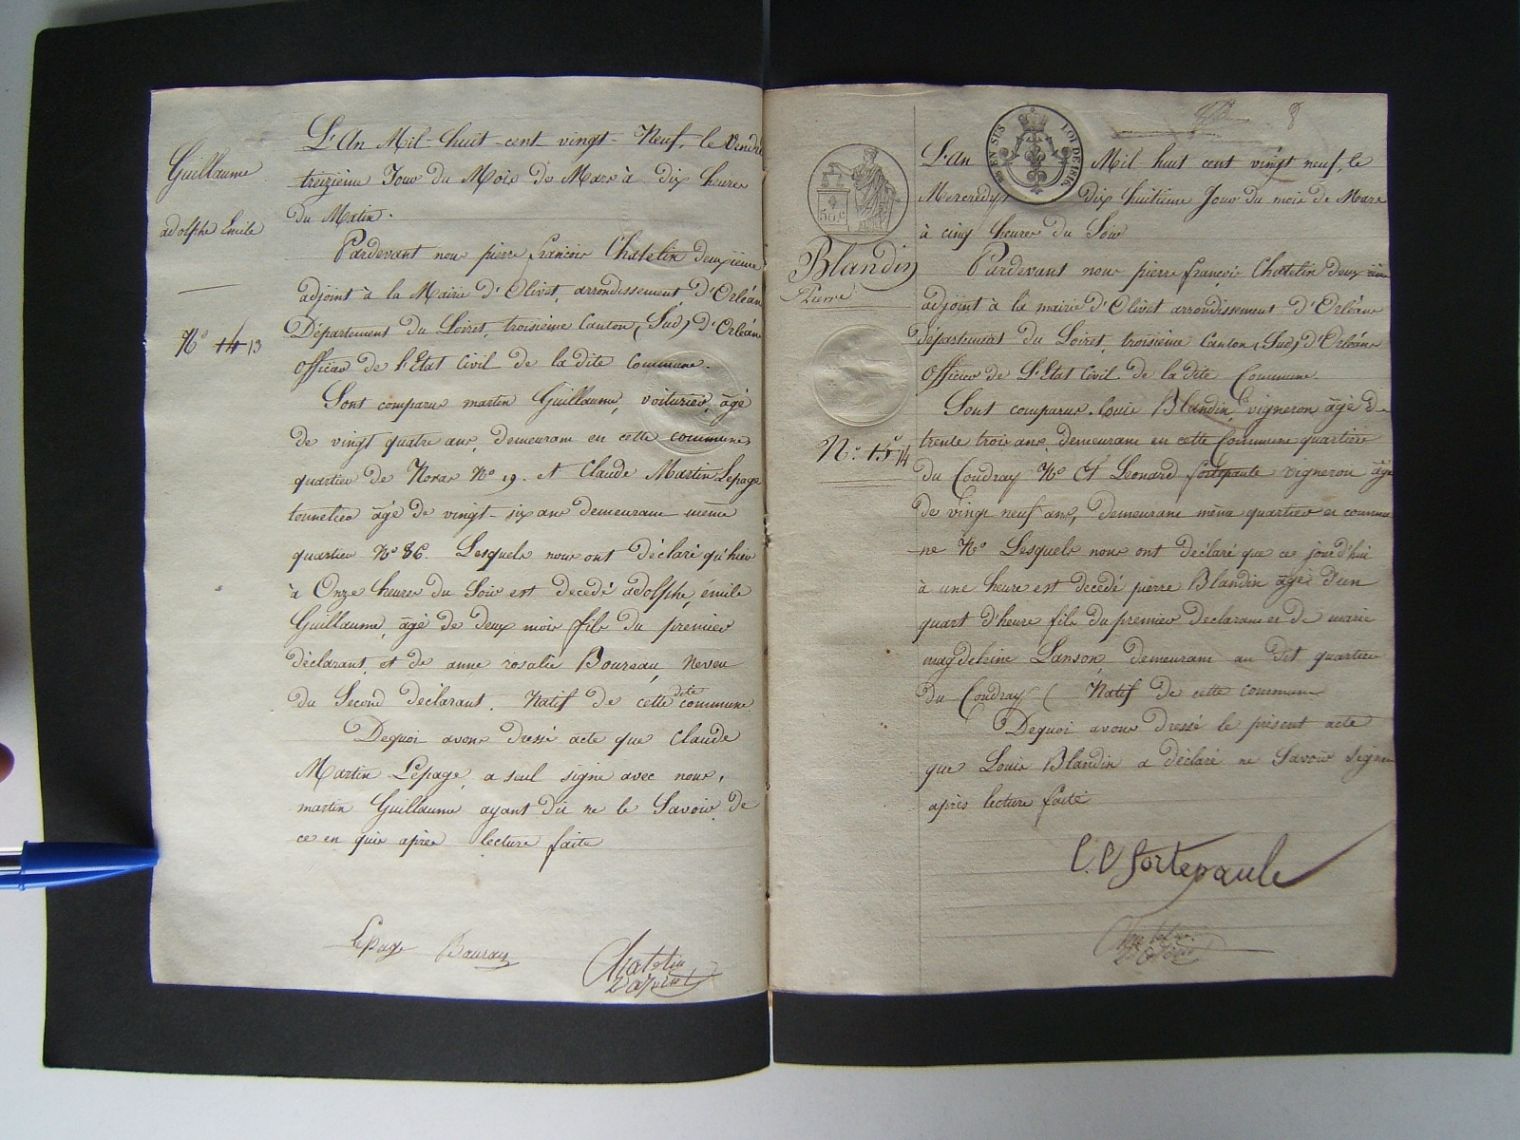 Guillaume
adolphe Emile
N.º 14 13
L'An Mil-huit-cent vingt-Neuf, le Vendre
treizième Jour du Mois de Mars à dix heures
du Matin.
Pardevant nous pierre françois Chatelin deuxième
adjoint à la Mairie d'Olivet, arrondissement d'Orléans
Département du Loiret, troisième Canton (Sud) d'Orléans
officier de l'Etat Civil de la dite Commune.
Sont comparus martin Guillaume, voiturier, âgé
de vingt quatre ans, demeurant en cette commune,
quartier de Noras Nº 19. et Claude Martin Lepage
tonnelier âgé de vingt-six ans demeurant même
quartier Nº 86. Lesquels nous ont déclaré qu'hier
à Onze heures du Soir est décédé adolphe, émile
Guillaume, âgé de deux mois fils du premier
déclarant, et de anne rosalie Boureau, Neveu
du Second déclarant. Natif de cette dite commune
Dequoi avons dressé acte que Claude
Martin Lepage, a seul signé avec nous,
martin Guillaume ayant dit ne le Savoir de
ce en quis après lecture faite
Lepage Boureau Chatelin
2e adjoint
Blandin
Pierre
Nº. 15 14
EN SUS LOI DE 1816.
50 c
L'An Mil huit cent vingt neuf, le
Mercredy dix huitième Jour du mois de Mars
à cinq heures du Soir
Pardevant nous pierre françois Chatelin deuxième
adjoint à la mairie d'Olivet arrondissement d'Orléans
département du Loiret, troisième Canton (Sud) d'Orléans
Officier de L'Etat Civil de la dite Commune
Sont comparus Louis Blandin vigneron âgé de
trente trois ans demeurant en cette Commune quartier
du Coudray Nº Et Léonard fortepaule vigneron âgé
de vingt neuf ans, demeurant même quartier et commu
ne Nº Lesquels nous ont déclaré que ce jourd'hui
à une heure est décédé pierre Blandin âgé d'un
quart d'heure fils du premier déclarant et de marie
magdeleine Lanson demeurant au dit quartier
du Coudray ( Natif de cette commune
Dequoi avons dressé le présent acte
que Louis Blandin a déclaré ne Savoir Signer
après lecture faite
fortepaule